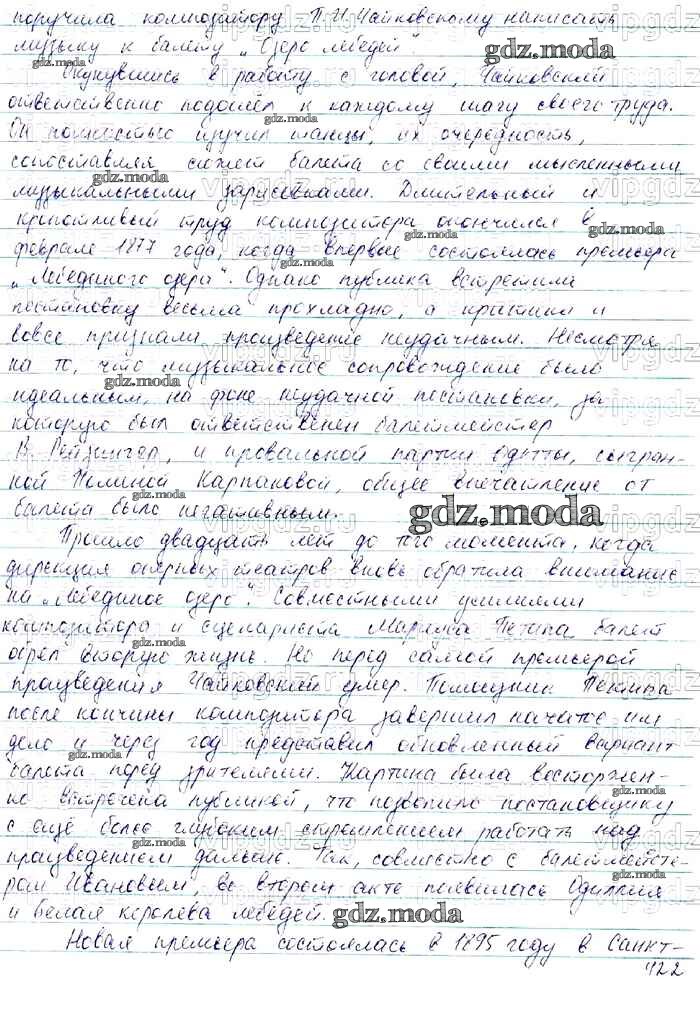 поручила композитору П.И. Чайковскому написать
музыку к балету „Озеро лебедей".
gdz.moda
Окунувшись в работу с головой, Чайковский
ответственно подошёл к каждому шагу своего труда.
gdz.moda
Он полностью изучил танцы, их очередность,
сопоставляя сюжет балета со своими мысленными
gdz.moda
музыкальными зарисовками. Длительный и
кропотливый труд композитора окончился в
gdz.moda
феврале 1877 года, когда впервые состоялась премьера
gdz.moda
„Лебединого озера". Однако публика встретила
постановку весьма прохладно, а критики и
вовсе признали произведение неудачным. Несмотря
gdz.moda
на то, что музыкальное сопровождение было
gdz.moda
идеальным, на фоне неудачной постановки, за
которую был ответственен балетмейстер
gdz.moda
В. Рейзингер, и провальной партии Одетты, сыгран-
ной Полиной Карпаковой, общее впечатление от
gdz.moda
балета было негативным.
gdz.moda
Прошло двадцать лет до того момента, когда
дирекция оперных театров вновь обратила внимание
на „Лебединое озеро". Совместными усилиями
композитора и сценариста Мариуса Петипа балет
gdz.moda
обрёл вторую жизнь. Но перед самой премьерой
gdz.moda
произведения Чайковский умер. Помощник Петипа
после кончины композитора завершил начатое им
gdz.moda
дело и через год представил обновлённый вариант
gdz.moda
балета перед зрителями. Картина была восторжен-
но встречена публикой, что позволило постановщику
gdz.moda
с ещё более глубоким стремлением работать над
gdz.moda
произведением дальше. Так, совместно с балетмейсте-
gdz.moda
ром Ивановым, во втором акте появилась Одиллия
и Белая королева лебедей.
gdz.moda
Новая премьера состоялась в 1895 году в Санкт-
gdz.moda
122